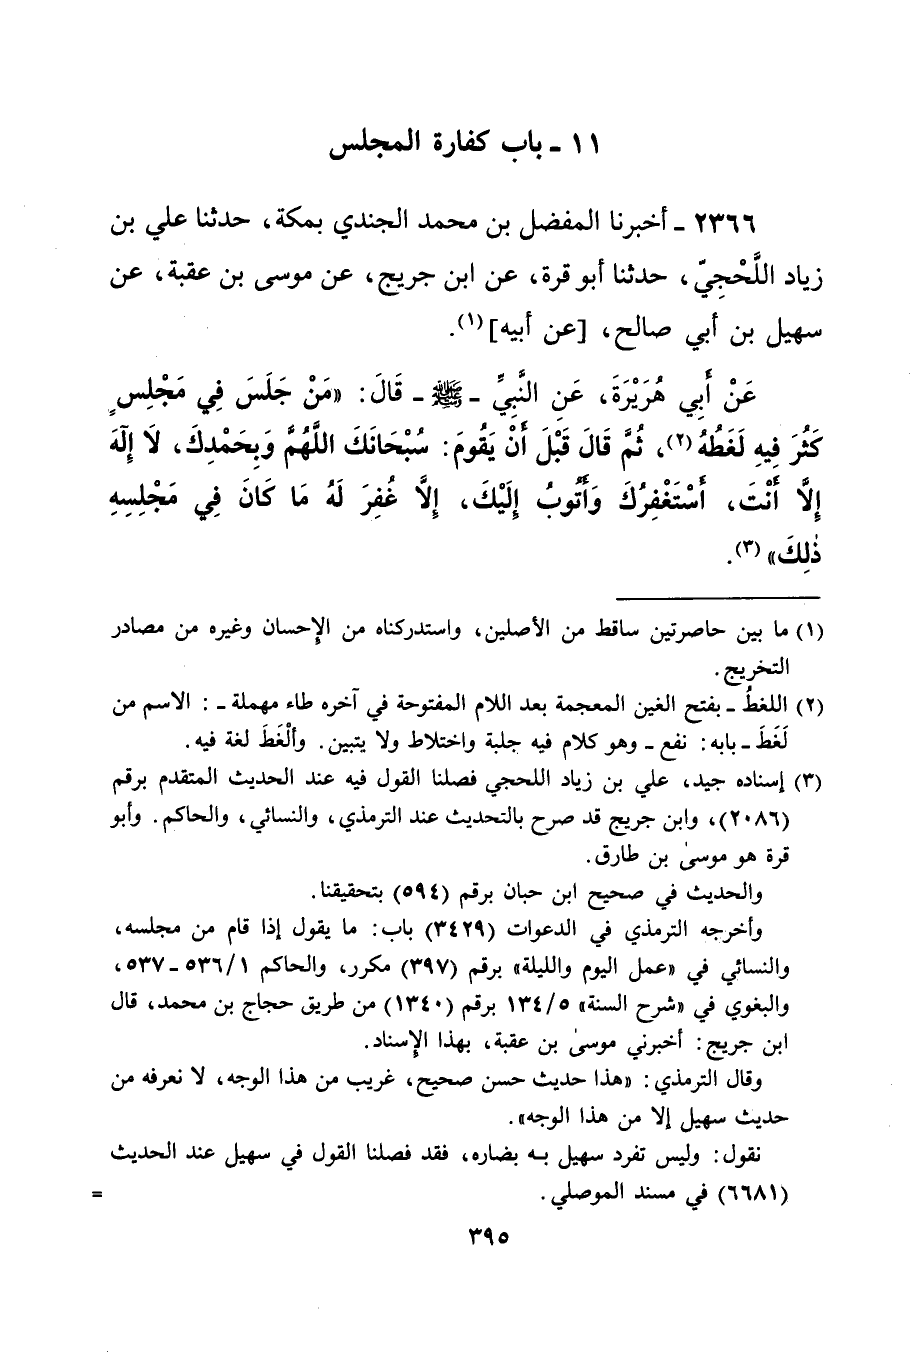 ١١ - باب كفارة المجلس
٢٣٦٦ - أخبرنا المفضل بن محمد الجندي بمكة، حدثنا علي بن
زياد اللَّحْجِيّ، حدثنا أبو قرة، عن ابن جريج، عن موسى بن عقبة، عن
سهيل بن أبي صالح، [عن أبيه](١).
عَنْ أَبِي هُرَيْرَةَ، عَنِ النَّبِيِّ - ﷺ - قَالَ: «مَنْ جَلَسَ فِي مَجْلِسٍ
كَثُرَ فِيهِ لَغَطُهُ(٢)، ثُمَّ قَالَ قَبْلَ أَنْ يَقُومَ: سُبْحَانَكَ اللَّهُمَّ وَبِحَمْدِكَ، لَا إِلَهَ
إِلَّا أَنْتَ، أَسْتَغْفِرُكَ وَأَتُوبُ إِلَيْكَ، إِلَّا غُفِرَ لَهُ مَا كَانَ فِي مَجْلِسِهِ
ذٰلِكَ»(٣).
(١) ما بين حاصرتين ساقط من الأصلين، واستدركناه من الإحسان وغيره من مصادر
التخريج.
(٢) اللغطُ - بفتح الغين المعجمة بعد اللام المفتوحة في آخره طاء مهملة - : الاسم من
لَغَطَ - بابه: نفع - وهو كلام فيه جلبة واختلاط ولا يتبين. وألْغَطَ لغة فيه.
(٣) إسناده جيد، علي بن زياد اللحجي فصلنا القول فيه عند الحديث المتقدم برقم
(٢٠٨٦)، وابن جريج قد صرح بالتحديث عند الترمذي، والنسائي، والحاكم. وأبو
قرة هو موسىٰ بن طارق.
والحديث في صحيح ابن حبان برقم (٥٩٤) بتحقيقنا.
وأخرجه الترمذي في الدعوات (٣٤٢٩) باب: ما يقول إذا قام من مجلسه،
والنسائي في «عمل اليوم والليلة» برقم (٣٩٧) مكرر، والحاكم ٥٣٦/١ - ٥٣٧،
والبغوي في «شرح السنة» ١٣٤/٥ برقم (١٣٤٠) من طريق حجاج بن محمد، قال
ابن جريج: أخبرني موسىٰ بن عقبة، بهذا الإسناد.
وقال الترمذي: «هذا حديث حسن صحيح، غريب من هذا الوجه، لا نعرفه من
حديث سهيل إلا من هذا الوجه».
نقول: وليس تفرد سهيل به بضاره، فقد فصلنا القول في سهيل عند الحديث
(٦٦٨١) في مسند الموصلي. =
٣٩٥